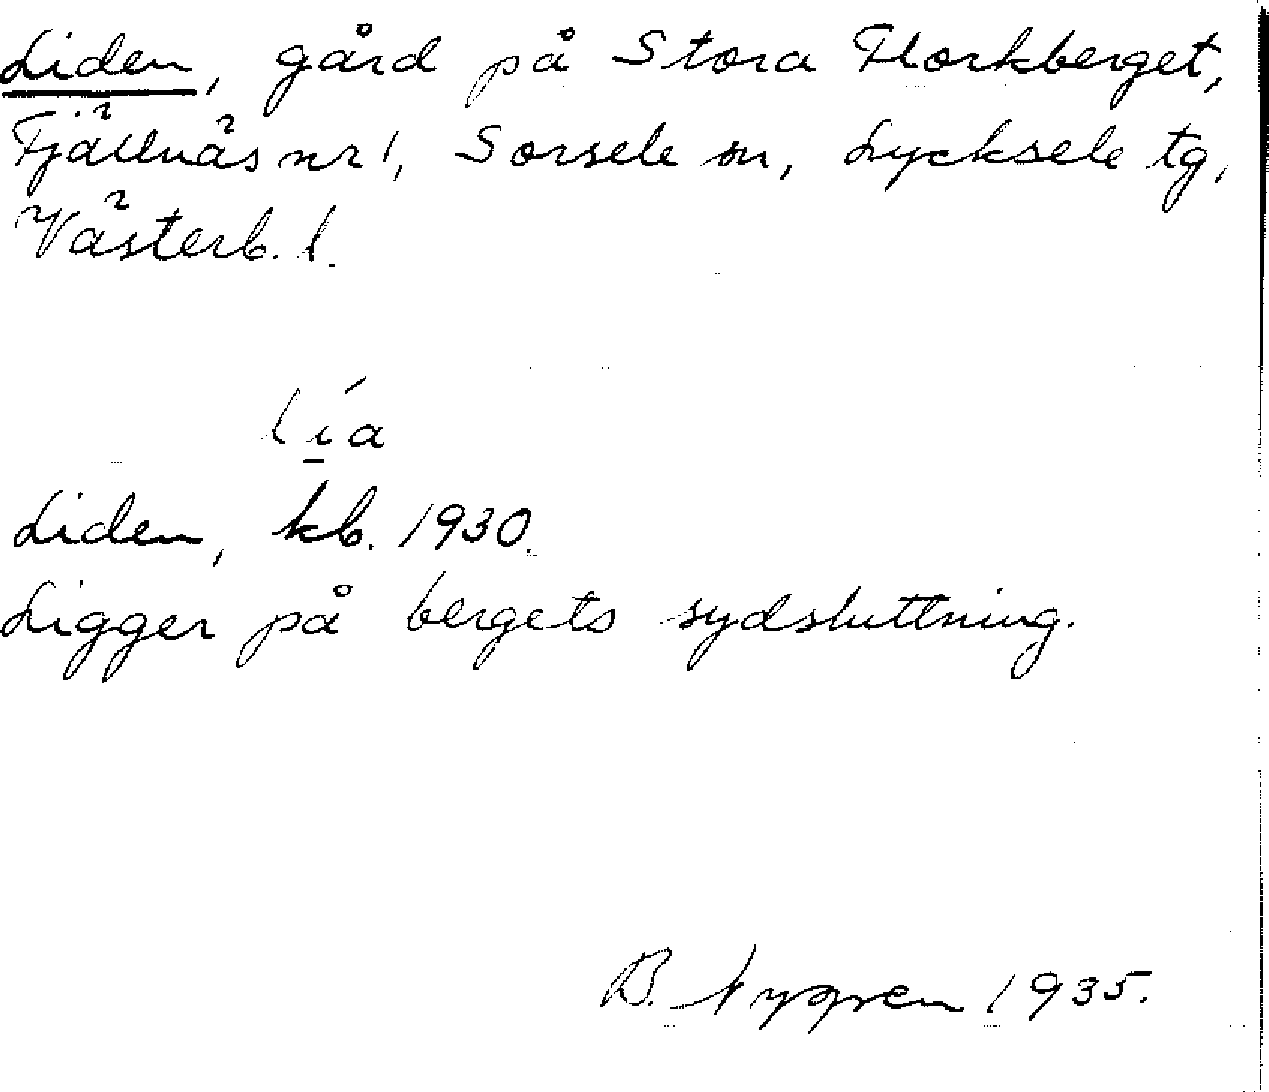 Liden, gård på Stora Florkberget,
Fjällnäs nr 1, Sorsele sn, Lycksele tg,
Västerb. l.
lı̱́a
Liden, kb. 1930.
Ligger på bergets sydsluttning.
B. Nygren 1935.